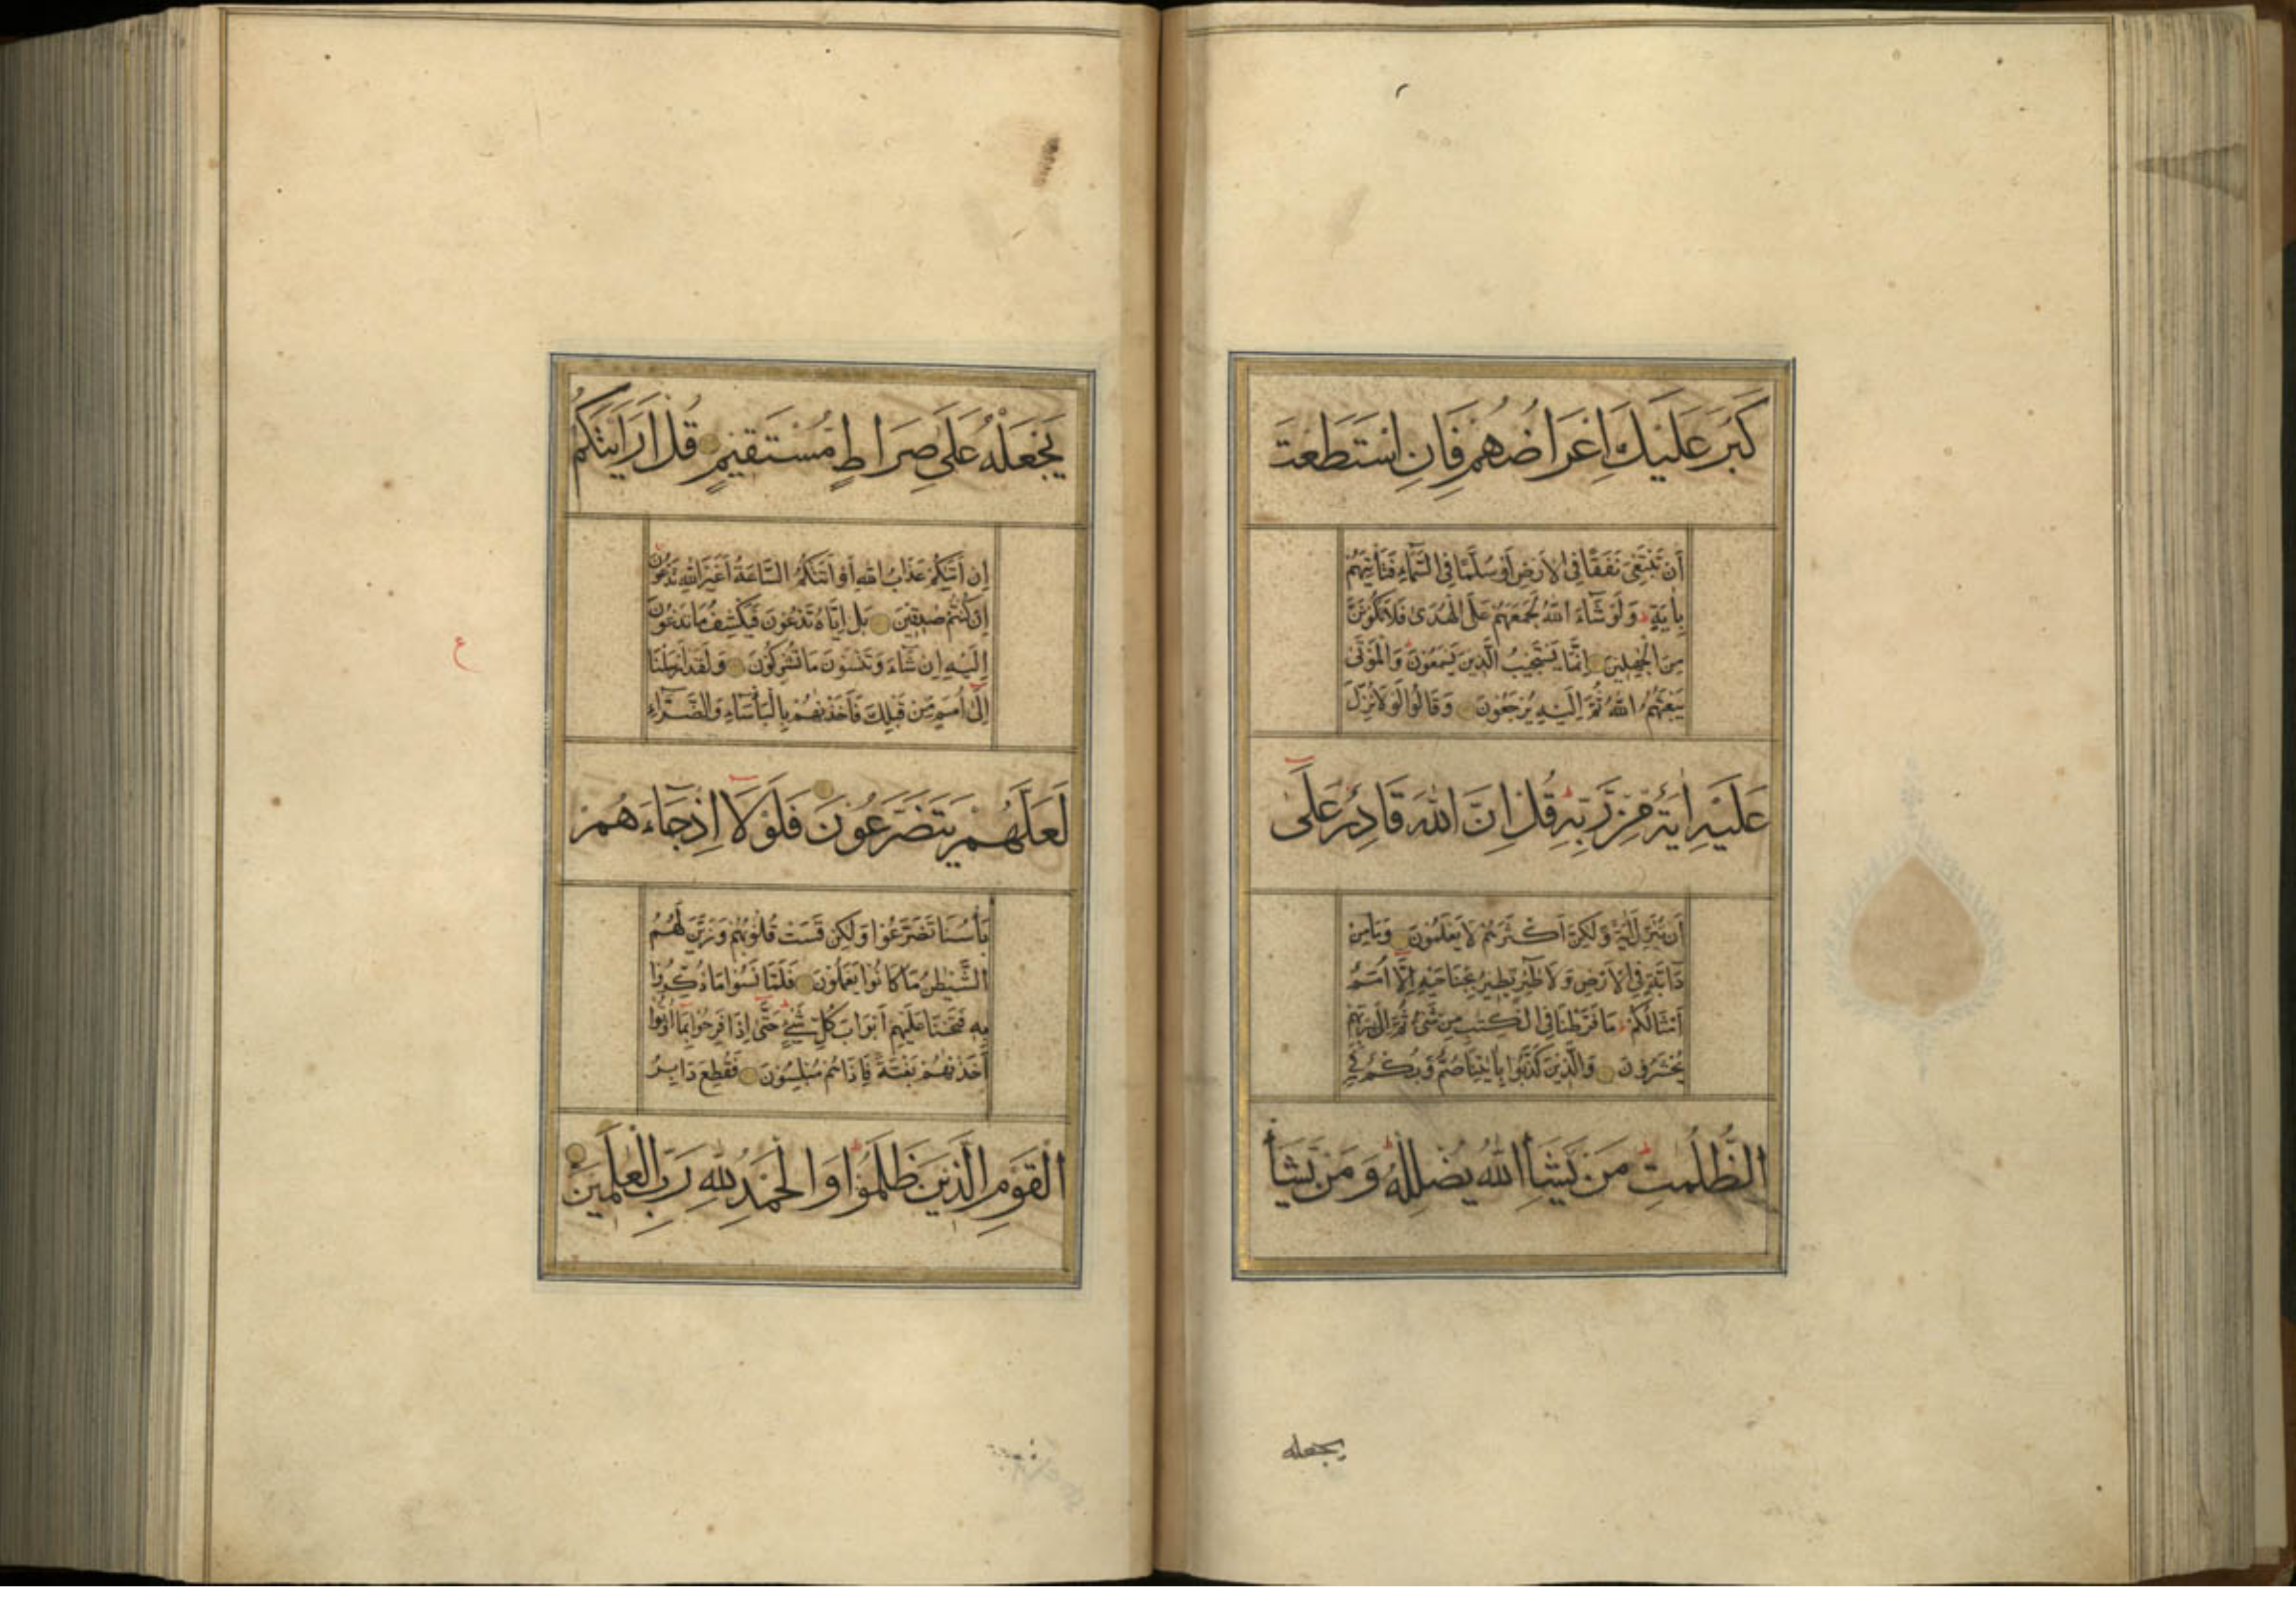 كَبُرَ عَلَيْكَ اِعْرَاضُهُمْ فَاِنِ اسْتَطَعْتَ
أَنْ تَبْتَغِيَ نَفَقًا فِي الْأَرْضِ أَوْ سُلَّمًا فِي السَّمَاءِ فَتَأْتِيَهُمْ
بِاٰيَةٍ ط وَلَوْ شَآءَ اللهُ لَجَمَعَهُمْ عَلَى الْهُدٰى فَلَا تَكُوْنَنَّ
مِنَ الْجٰهِلِيْنَ اِنَّمَا يَسْتَجِيْبُ الَّذِيْنَ يَسْمَعُوْنَ ط وَالْمَوْتٰى
يَبْعَثُهُمُ اللهُ ثُمَّ اِلَيْهِ يُرْجَعُوْنَ وَقَالُوْا لَوْلَا نُزِّلَ
عَلَيْهِ اٰيَةٌ مِّنْ رَّبِّهٖ ط قُلْ اِنَّ اللهَ قَادِرٌ عَلٰٓى
اَنْ يُّنَزِّلَ اٰيَةً وَّلٰكِنَّ اَكْثَرَهُمْ لَا يَعْلَمُوْنَ وَمَا مِنْ
دَآبَّةٍ فِي الْاَرْضِ وَلَا طٰٓئِرٍ يَّطِيْرُ بِجَنَاحَيْهِ اِلَّآ اُمَمٌ
اَمْثَالُكُمْ ط مَا فَرَّطْنَا فِي الْكِتٰبِ مِنْ شَيْءٍ ثُمَّ اِلٰى رَبِّهِمْ
يُحْشَرُوْنَ وَالَّذِيْنَ كَذَّبُوْا بِاٰيٰتِنَا صُمٌّ وَّبُكْمٌ فِي
الظُّلُمٰتِ ط مَنْ يَّشَاِ اللهُ يُضْلِلْهُ ط وَمَنْ يَّشَأْ
يجعله
يَجْعَلْهُ عَلٰى صِرَاطٍ مُّسْتَقِيْمٍ قُلْ اَرَاَيْتَكُمْ
اِنْ اَتٰىكُمْ عَذَابُ اللهِ اَوْ اَتَتْكُمُ السَّاعَةُ اَغَيْرَ اللهِ تَدْعُوْنَ
اِنْ كُنْتُمْ صٰدِقِيْنَ بَلْ اِيَّاهُ تَدْعُوْنَ فَيَكْشِفُ مَا تَدْعُوْنَ
اِلَيْهِ اِنْ شَآءَ وَتَنْسَوْنَ مَا تُشْرِكُوْنَ وَلَقَدْ اَرْسَلْنَا
اِلٰٓى اُمَمٍ مِّنْ قَبْلِكَ فَاَخَذْنٰهُمْ بِالْبَاْسَآءِ وَالضَّرَّآءِ
لَعَلَّهُمْ يَتَضَرَّعُوْنَ فَلَوْلَآ اِذْ جَآءَهُمْ
بَأْسُنَا تَضَرَّعُوْا وَلٰكِنْ قَسَتْ قُلُوْبُهُمْ وَزَيَّنَ لَهُمُ
الشَّيْطٰنُ مَا كَانُوْا يَعْمَلُوْنَ فَلَمَّا نَسُوْا مَا ذُكِّرُوْا
بِهٖ فَتَحْنَا عَلَيْهِمْ اَبْوَابَ كُلِّ شَيْءٍ ط حَتّٰٓى اِذَا فَرِحُوْا بِمَآ اُوْتُوْٓا
اَخَذْنٰهُمْ بَغْتَةً فَاِذَا هُمْ مُّبْلِسُوْنَ فَقُطِعَ دَابِرُ
الْقَوْمِ الَّذِيْنَ ظَلَمُوْا ط وَالْحَمْدُ لِلّٰهِ رَبِّ الْعٰلَمِيْنَ
ع